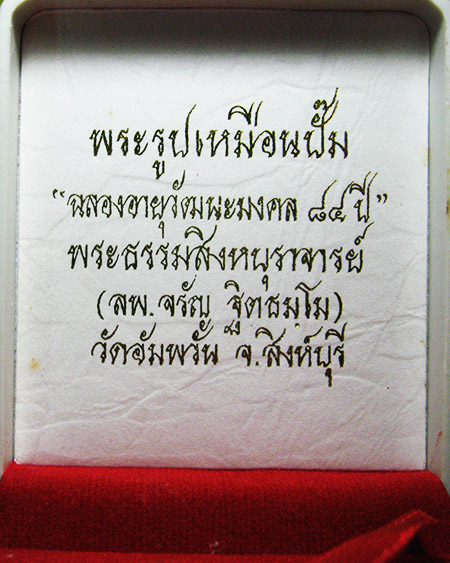 พระรูปเหมือนปั๊ม
“ฉลองอายุวัฒนะมงคล ๘๔ ปี”
พระธรรมสิงหบุราจารย์
(ลพ.จรัญ ฐิตธมฺโม)
วัดอัมพวัน จ.สิงห์บุรี